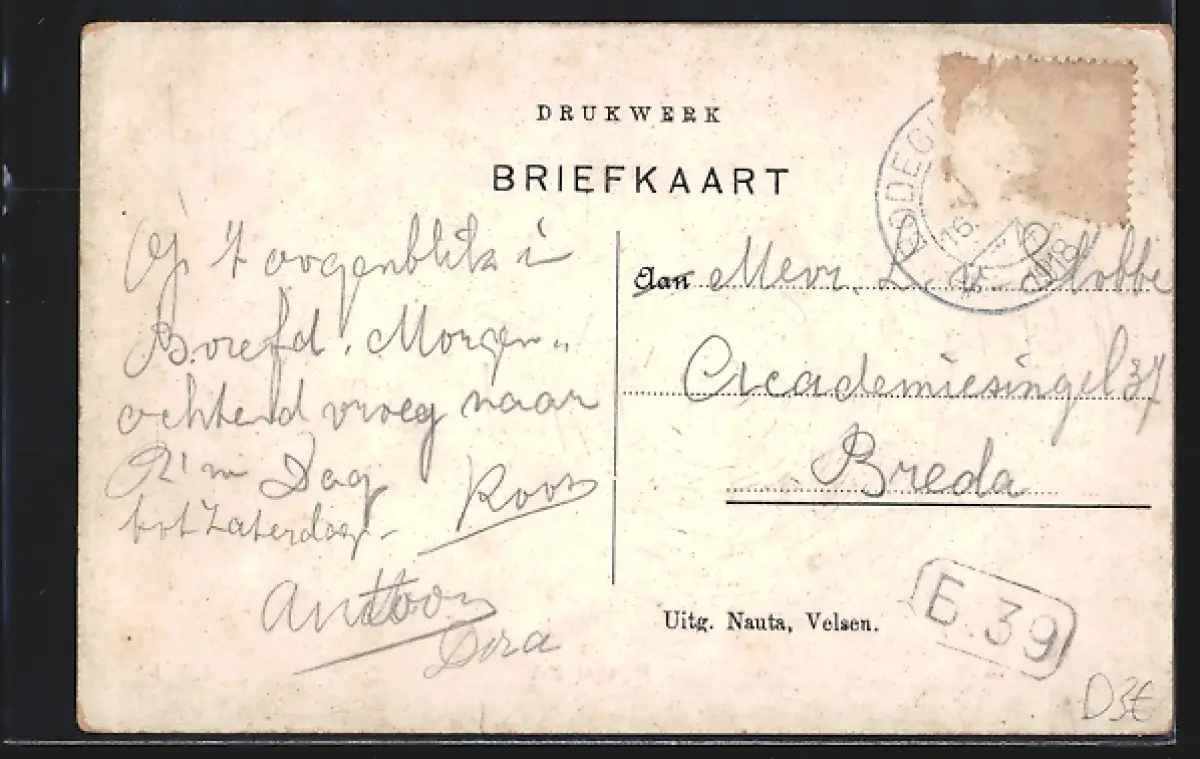 DRUKWERK
BRIEFKAART
Op 't oogenblik in
Morgen„
ochtend vroeg naar
R'm Dag
tot Zaterdag. Koos
Antoon
Dora
Aan Mevr. L. v. Slobbe
Academiesingel 37
Breda
Uitg. Nauta, Velsen.
E.39
D3€